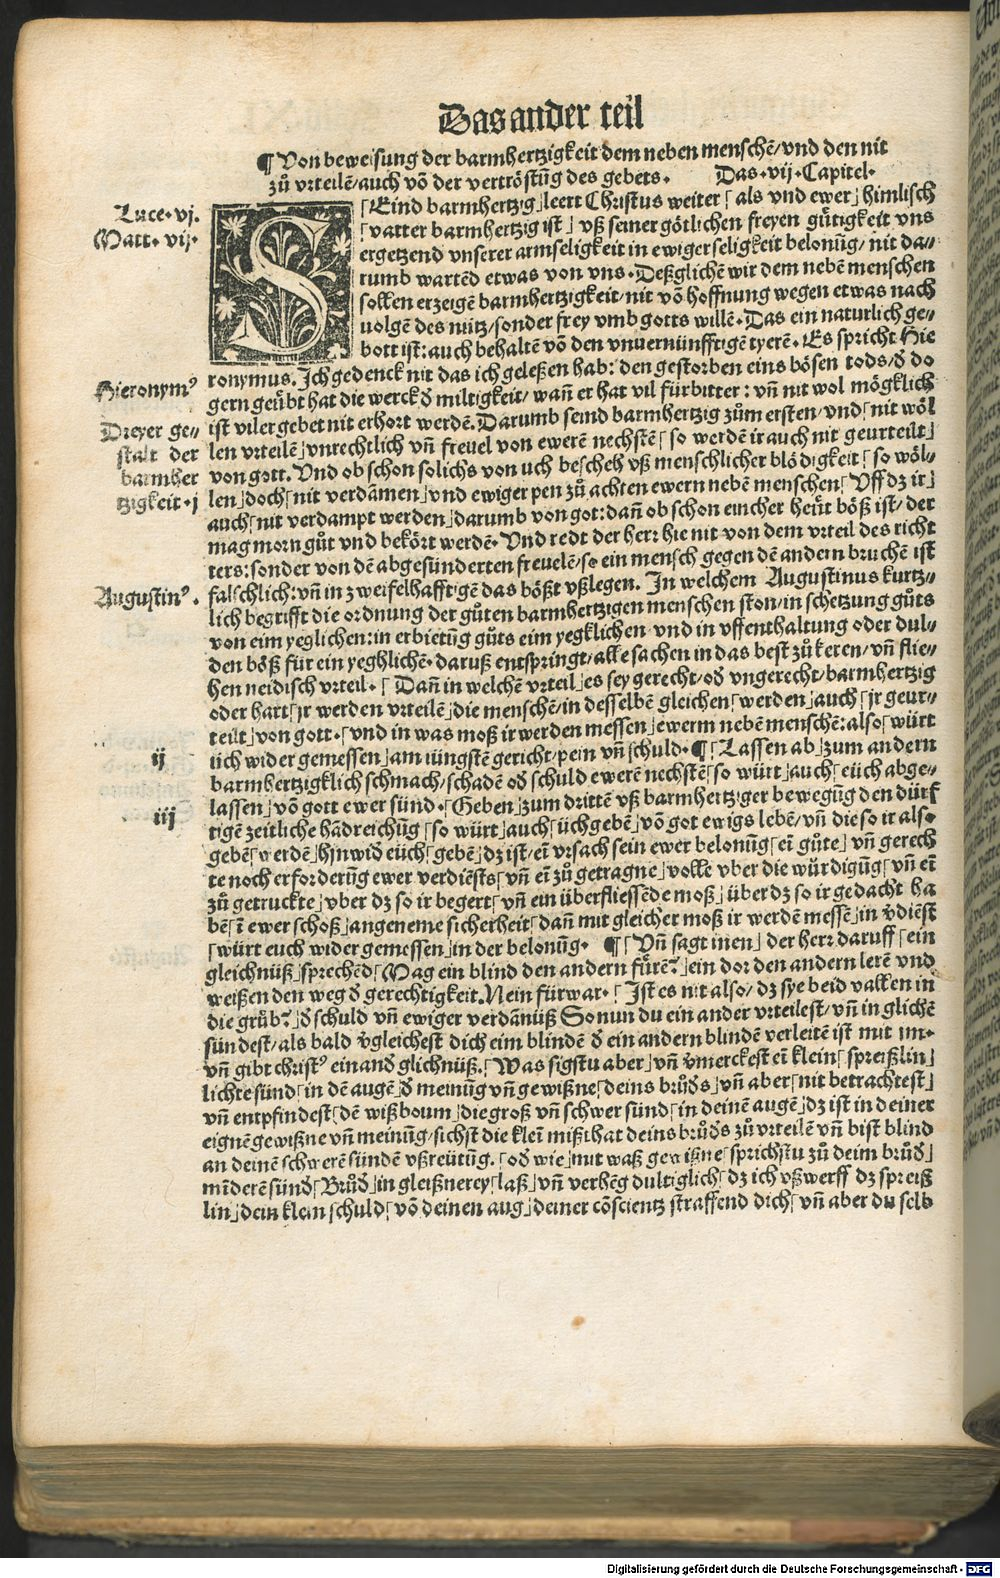 Das ander teil
¶ Von beweisung der barmhertzigkeit dem neben menschē/vnd den nit
zů vrteilē/auch vō der vertröstūg des gebets. Das.vij.Capitel.
Luce.vj.
Matt.vij.
SEind barmhertzig leert Christus weiter als vnd ewer himlisch
vatter barmhertzig ist vß seiner götlichen freyen gůtigkeit vns
ergetzend vnserer armseligkeit in ewiger seligkeit belonūg/nit da⸗
rumb wartēd etwas von vns. Deßglichē wir dem nebē menschen
sollen erzeigē barmhertzigkeit/nit vō hoffnung wegen etwas nach
uolgē des nütz/sonder frey vmb gotts willē. Das ein naturlich ge⸗
bott ist: auch behaltē vō den vnuernünfftigē tyerē. Es spricht Hie
Hieronymꝰ
ronymus. Ich gedenck nit das ich geleßen hab: den gestorben eins bösen tods/ð do
gern geůbt hat die werck ð miltigkeit/wañ er hat vil fürbitter: vñ nit wol mögklich
ist viler gebet nit erhort werdē. Darumb seind barmhertzig zům ersten/vnd nit wöl
Dreyer ge⸗
stalt der
barmher
tzigkeit.j
len vrteilē vnrechtlich vñ freuel von ewerē nechstē so werdē ir auch nit geurteilt
von gott. Vnd ob schon solichs von uch bescheh vß menschlicher blödigkeit so wöl⸗
len doch nit verdāmen vnd ewiger pen zů achten ewern nebē menschen Vff dz ir
auch nit verdampt werden darumb von got: dañ ob schon eincher heüt böß ist/der
mag morn gůt vnd bekört werdē. Vnd redt der herr hie nit von dem vrteil des richt
ters: sonder von dē abgesünderten freuelē/so ein mensch gegen dē andern bruchē ist
Augustinꝰ.
falschlich: vñ in zweifelhafftigē das bößt vßlegen. In welchem Augustinus kurtz⸗
lich begrifft die ordnung der gůten barmhertzigen menschen ston/in schetzung gůts
von eim yeglichen: in erbietūg gůts eim yegklichen vnd in vffenthaltung oder dul⸗
den böß für ein yeghlichē. daruß entspringt/alle sachen in das best zů keren/vñ flie⸗
hen neidisch vrteil. Dañ in welchē vrteil es sey gerecht/oð vngerecht/barmhertzig
oder hart jr werden vrteilē die menschē/in desselbē gleichen werden auch jr geur⸗
teilt von gott. vnd in was moß ir werden messen ewerm nebē menschē: also würt
ij
üch wider gemessen am iüngstē gericht/pein vñ schuld. ¶ Lassen ab zum andern
barmhertzigklich schmach/schadē oð schuld ewerē nechstē so würt auch eüch abge⸗
iij
lassen vō gott ewer sünd. Geben zum drittē vß barmhertziger bewegūg den dürf
tigē zeitliche hādreichūg so würt auch üch gebē vō got ewigs lebē/vñ die so ir also
gebē werdē hinwið eüch gebē dz ist/eī vrsach sein ewer belonūg eī gůte vñ gerech
te noch erforderūg ewer verdiēsts vñ eī zů getragne volle vber die würdigūg vñ eī
zů getruckte vber dz so ir begert vñ ein überfliessēde moß über dz so ir gedacht ha
bē ī ewer schoß angeneme sicherheit dañ mit gleicher moß ir werdē messē in v̄diēst
würt euch wider gemessen in der belonūg. ¶ Vñ sagt inen der herr daruff ein
gleichnüß sprechēd Mag ein blind den andern fůrē? ein dor den andern lerē vnd
weißen den weg ð gerechtigkeit. Nein fürwar. Ist es nit also/dz sye beid vallen in
die grůb? ð schuld vñ ewiger verdānüß So nun du ein ander vrteilest/vñ in glichē
sündest/als bald v̄gleichest dich eim blindē ð ein andern blindē verleitē ist mit im.
vñ gibt christꝰ ein anð glichnüß. Was sigstu aber vñ v̄merckest eī klein spreißlin
lichte sünd in dē augē ð meinūg vñ gewißne deins brůðs vñ aber nit betrachtest
vñ entpfindest dē wißboum die groß vñ schwer sünd in deinē augē dz ist in deiner
eignē gewißne vñ meinūg/sichst die kleī mißthat deins brůðs zů vrteilē vñ bist blind
an deinē schwerē sündē vßreütūg. oð wie mit waß gewißne sprichstu zů deim brůð
mīderē sünð Brůð in gleißnerey laß vñ verhēg dultiglich dz ich vßwerff dz spreiß
lin dein klein schuld vō deinen aug deiner cōscientz straffend dich vñ aber du selb
Digitalisierung gefördert durch die Deutsche Forschungsgemeinschaft - DFG